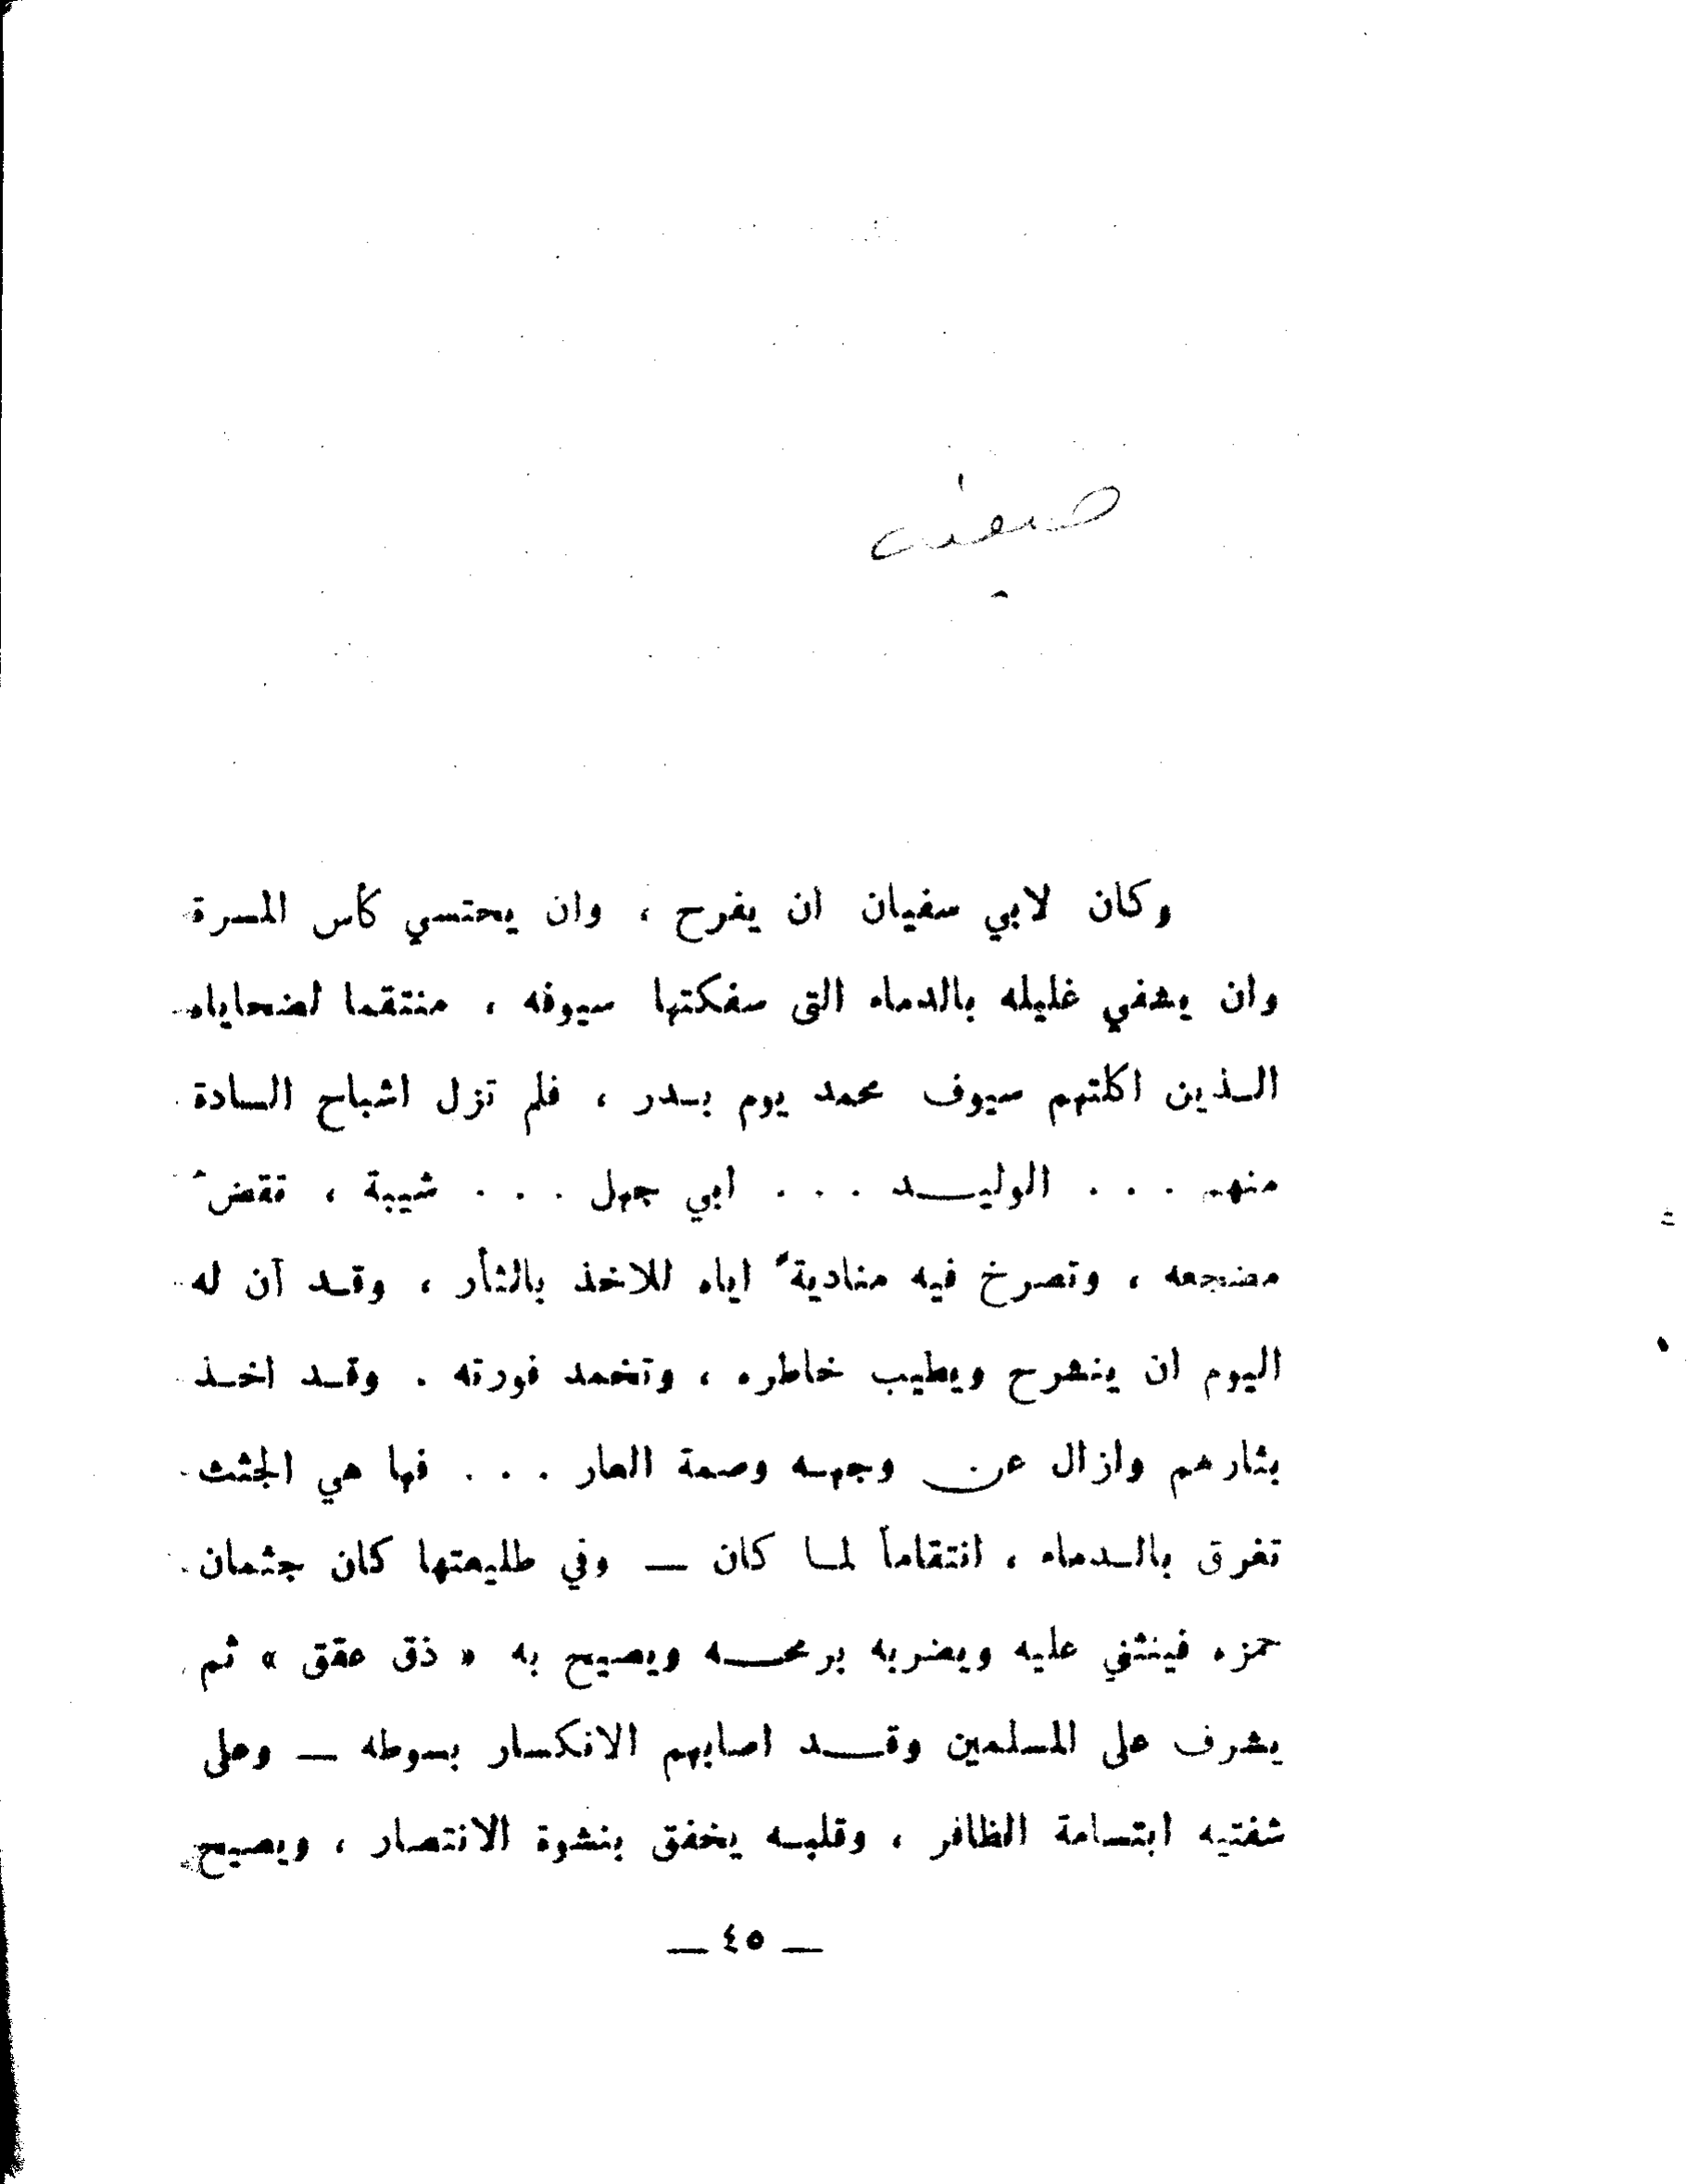 وكان لابي سفيان ان يفرح ، وان يحتسي كأس المسرة
وان يشفي غليله بالدماء التى سفكتها سيوفه ، منتقما لضحاياه
الـذين اكلتهم سيوف محمد يوم بـدر ، فلم تزل اشباح السادة
منهم . . . الوليـــد . . . ابي جهل . . . شيبة ، تقضُ
مضجعه ، وتصرخ فيه مناديةً اياه للاخذ بالثأر ، وقـد آن له
اليوم ان ينشرح ويطيب خاطره ، وتخمد فورته . وقـد اخـذ
بثارهم وازال عن وجهـه وصمة العار . . . فها هي الجثث
تغرق بالـدماء ، انتقاماً لمـا كان — وفي طليعتها كان جثمان
حمزه فينثني عليه ويضربه برمحـــه ويصيح به « ذق عقق » ثم
يشرف على المسلمين وقـــد اصابهم الانكسار بسوطه — وعلى
شفتيه ابتسامة الظافر ، وقلبـه يخفق بنشوة الانتصار ، ويصيح
— ٤٥ —